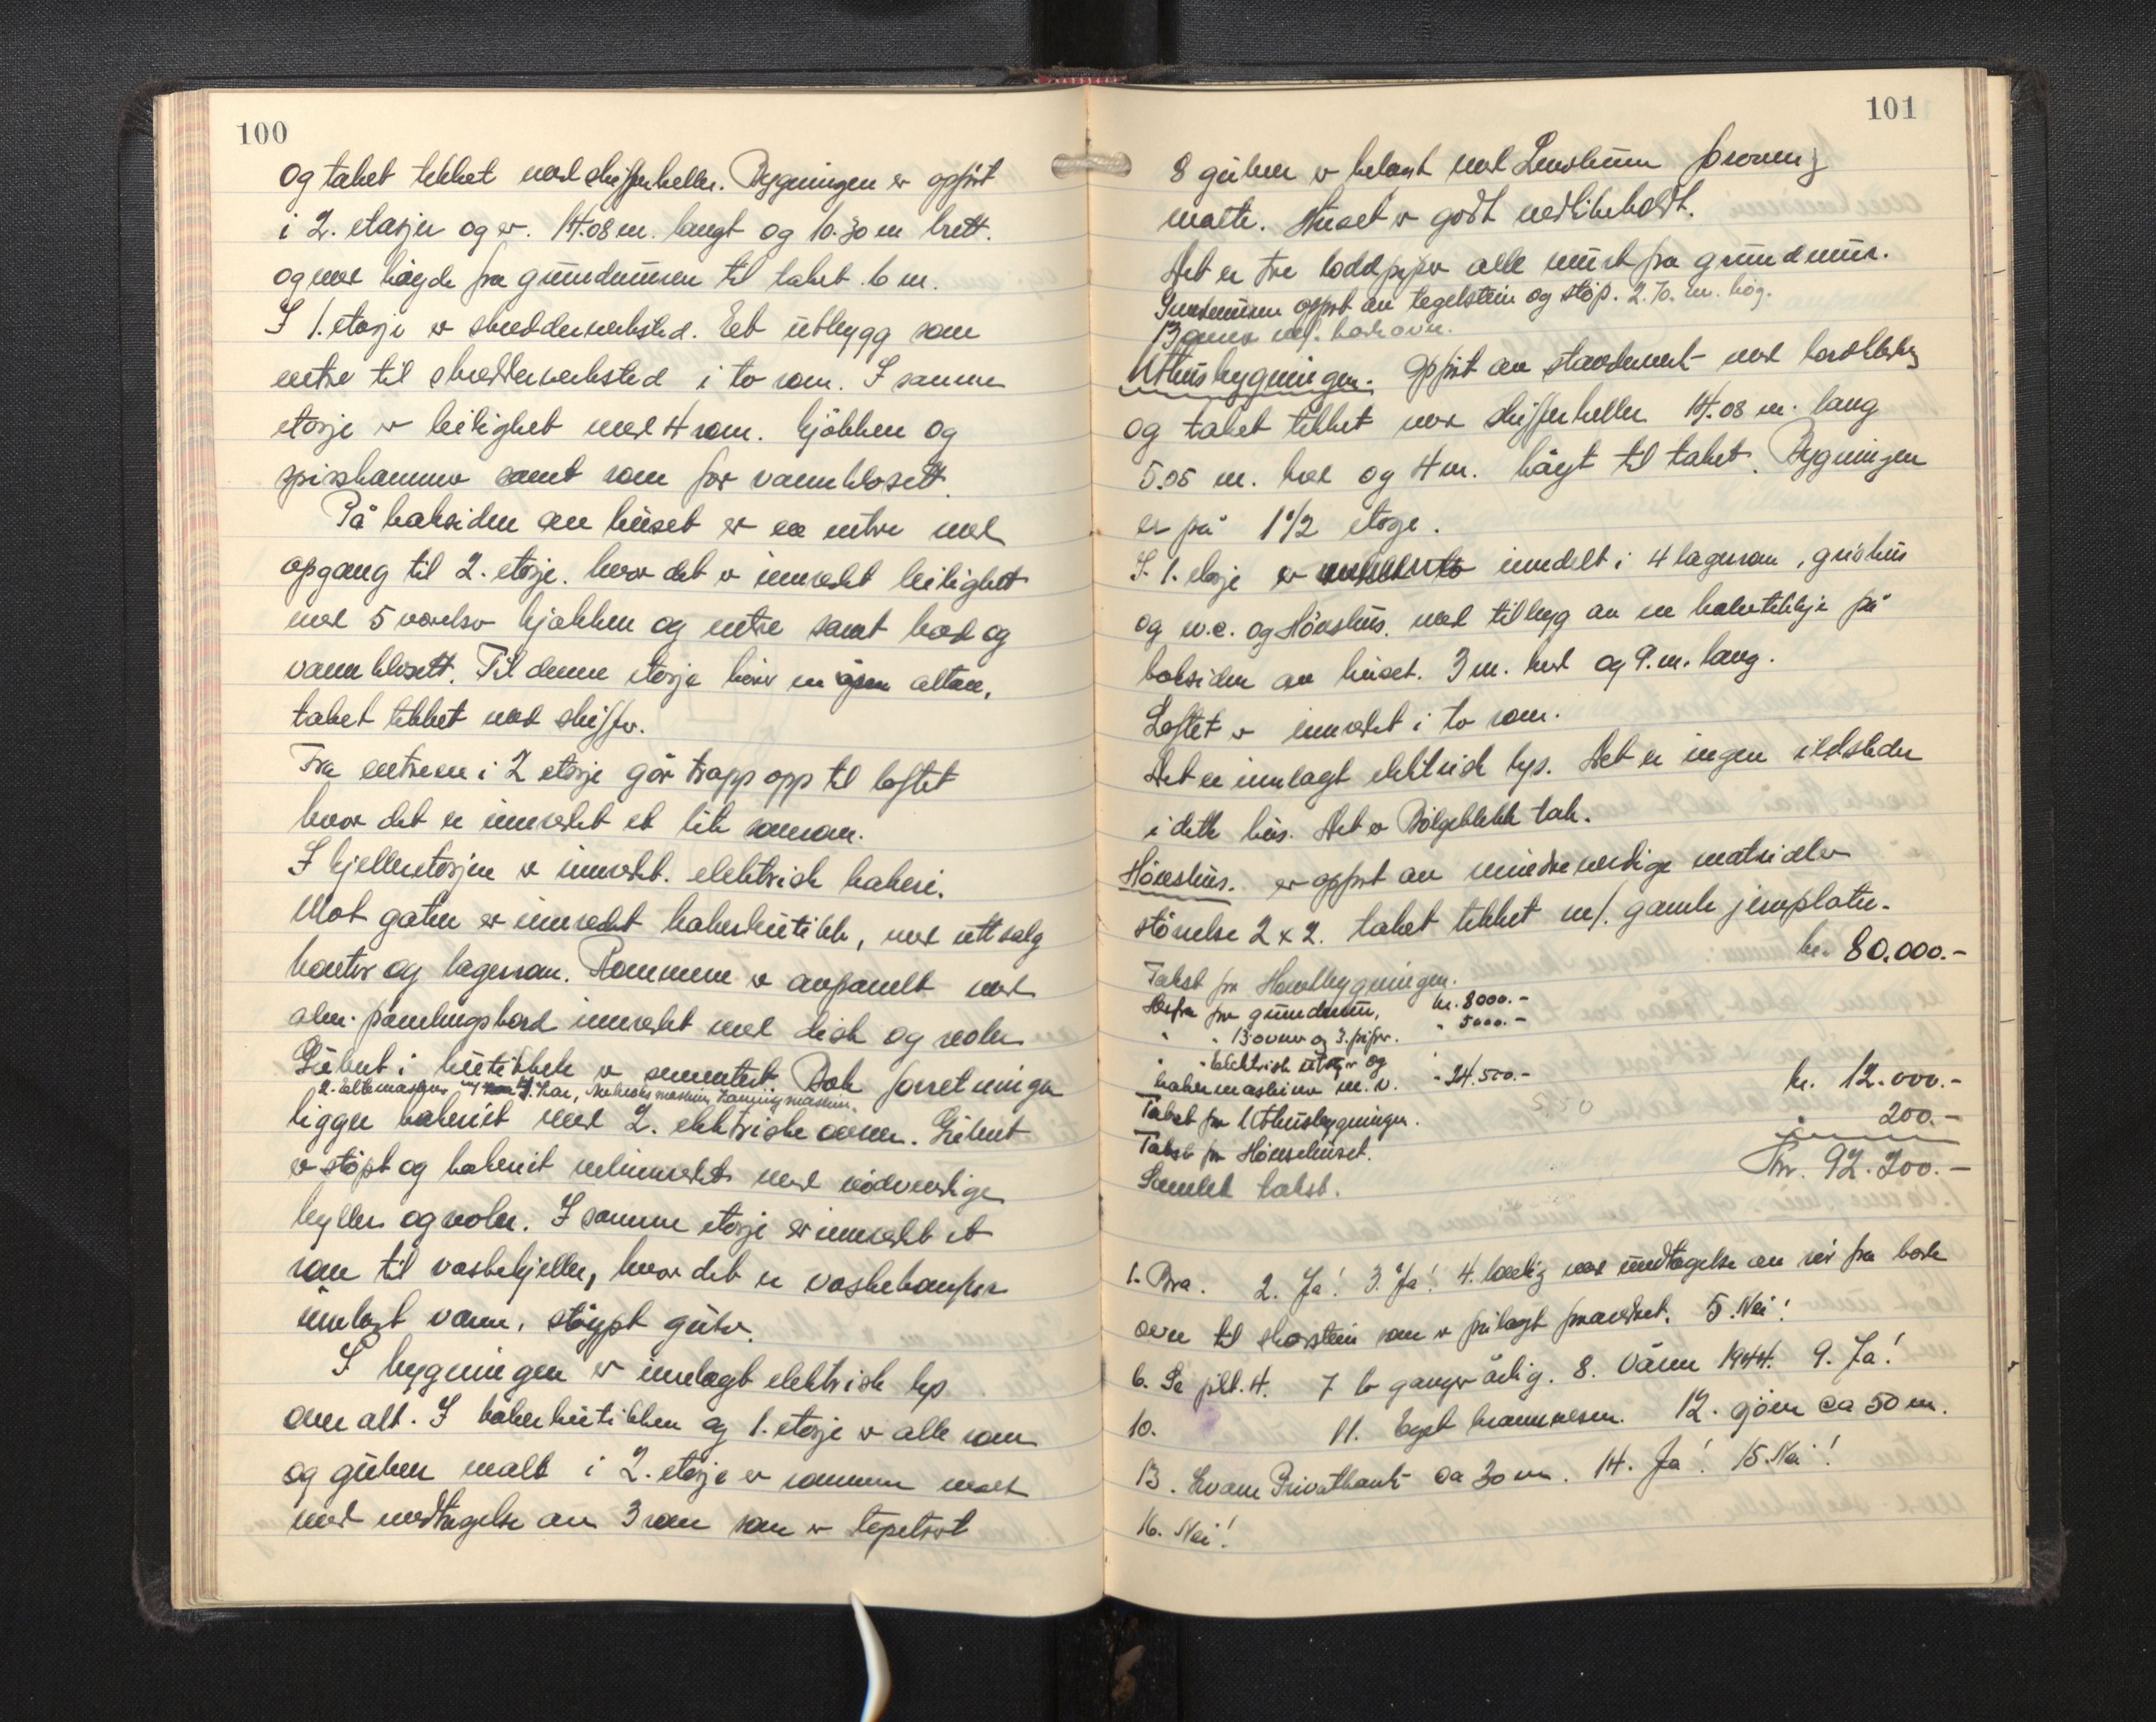 100
og taket tekket med skifferheller. Bygningen er opført
i 2. etasjer og er. 14.08 m. langt og 10.30 m brett.
og med høyde fra grundmuren til taket 6 m.
I 1. etasje er skredderverksted. Eet utbygg som
entre til skredderverksted i to rom. I samme
etasje er leilighet med 4 rom. kjökken og
spisskammer samt rom for vannklosett.
På baksiden av huset er en entre med
opgang til 2. etasje. hvor det er innredet leilighet
med 5 værelser kjøkken og entre samt bad og
vannklosett. Til denne etasje hører en åpen altan,
taket tekket med skiffer.
Fra entreen i 2 etasje går trapp opp til loftet
hvor det er innredet et lite rom.
I kjelleretasjen er innredet. elektrisk bakeri.
Mot gaten er innredet bakerbutikk, med uttsalg
kontor og lagerrom. Rommene er avpanelt med
alm. panelingsbord innredet med disk og reoler
Gulvet i butikken er sementert. Bak forretningen
2. Eltemaskiner m/ 4. Kar,
ligger bakeriet med 2. elektriske ovner. Gulvet
er støpt og bakeriet velinnredet med nödvendige
hyller og reoler. I samme etasje er innredet et
rom til vaskekjeller, hvor det er vaskekomfyr
innlagt vann, støypt gulv.
I bygningen er innlagt elektrisk lys
over alt. I bakerbutikken og 1. etasje er alle rom
og gulver malt i 2. etasje er rommene malt
med undtagelse av 3 rom som er tapetsert
101
8 gulver er belagt med Linoleum forøvrig
malte. Huset er godt vedlikeholdt.
Det er tre loddpiper alle murt fra grundmur.
Grundmuren oppført av tegelstein og støp. 2.70. m. høg.
13 ovner m/. bakeovn.
Uthusbygningen. Oppført av stavderverk med bordkledning
og taket tekket med skifferheller 14.08 m. lang
5.05 m. bred og 4 m. høgt til taket. Bygningen
er på 1 1/2 etasje.
I. 1. etasje er inndelt i 4 lagerrom, grishus
og w.c. og Hönshus. med tilbygg av en
baksiden av huset. 3 m. bred og 9. m. lang.
Loftet er innredet i to rom.
Det er innlagt elektrisk lys. Det er ingen ildsteder
i dette hus. Det er Bölgeblekk tak.
Hönshus. er oppført av mindreverdige matrialer
störrelse 2 x 2. taket tekket m/. gamle jernplater.
kr. 80.000.-
Takst for Hovedbygningen.
Herfra for grundmur, kr. 8000.-
" " 13 ovner og 3. piper. " 5000.-
" " Elektrisk utstyr og
bakermaskiner m. v. " 24.500.-
kr. 12.000.-
550
Takst for Uthusbygningen.
" 200.-
Takst for Hönsehuset.
Kr. 92.200.-
Samlet takst.
1. Bra. 2. Ja! 3. Ja! 4. Lovlig med undtagelse av rör fra bake
ovn til skorstein som er pålagt forandret. 5. Nei!
6. Se pkt. 4. 7 to ganger årlig. 8. Våren 1944. 9. Ja!
10. 11. Eget brannvesen. 12. ca 50 m.
13. Kvam Privatbank ca 30 m. 14. Ja! 15. Nei!
16. Nei!